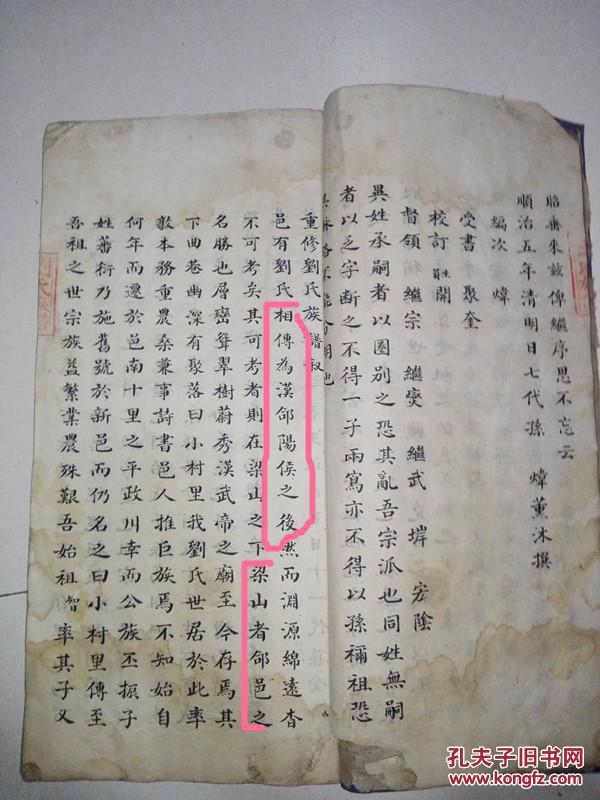 昭垂來茲俾繼序思不忘云
順治五年清明日七代孫 煒薰沐撰
編次 煒
受書 聚奎
校訂 開
督領 繼宗 世 繼奕 繼武 墀 宏蔭
異姓承嗣者以圈別之恐其亂吾宗派也同姓無嗣
者以乏字斷之不得一子兩寫亦不得以孫禰祖恐
重修劉氏族譜叙
邑有劉氏相傳為漢郃陽侯之後然而淵源綿遠杳
不可考矣其可考者則在梁山之下梁山者郃邑之
名勝也層巒聳翠樹蔚秀漢武帝之廟至今存焉其
下曲巷幽深有聚落曰小村里我劉氏世居於此率
敦本務重農桑兼事詩書邑人推巨族焉不知始自
何年而遷於邑南十里之平政川幸而公族丕振子
姓蕃衍乃施舊號於新邑而仍名之曰小村里傳至
吾祖之世宗族益繁業農殊艱吾始祖智率其子又
孔夫子旧书网
www.kongfz.com